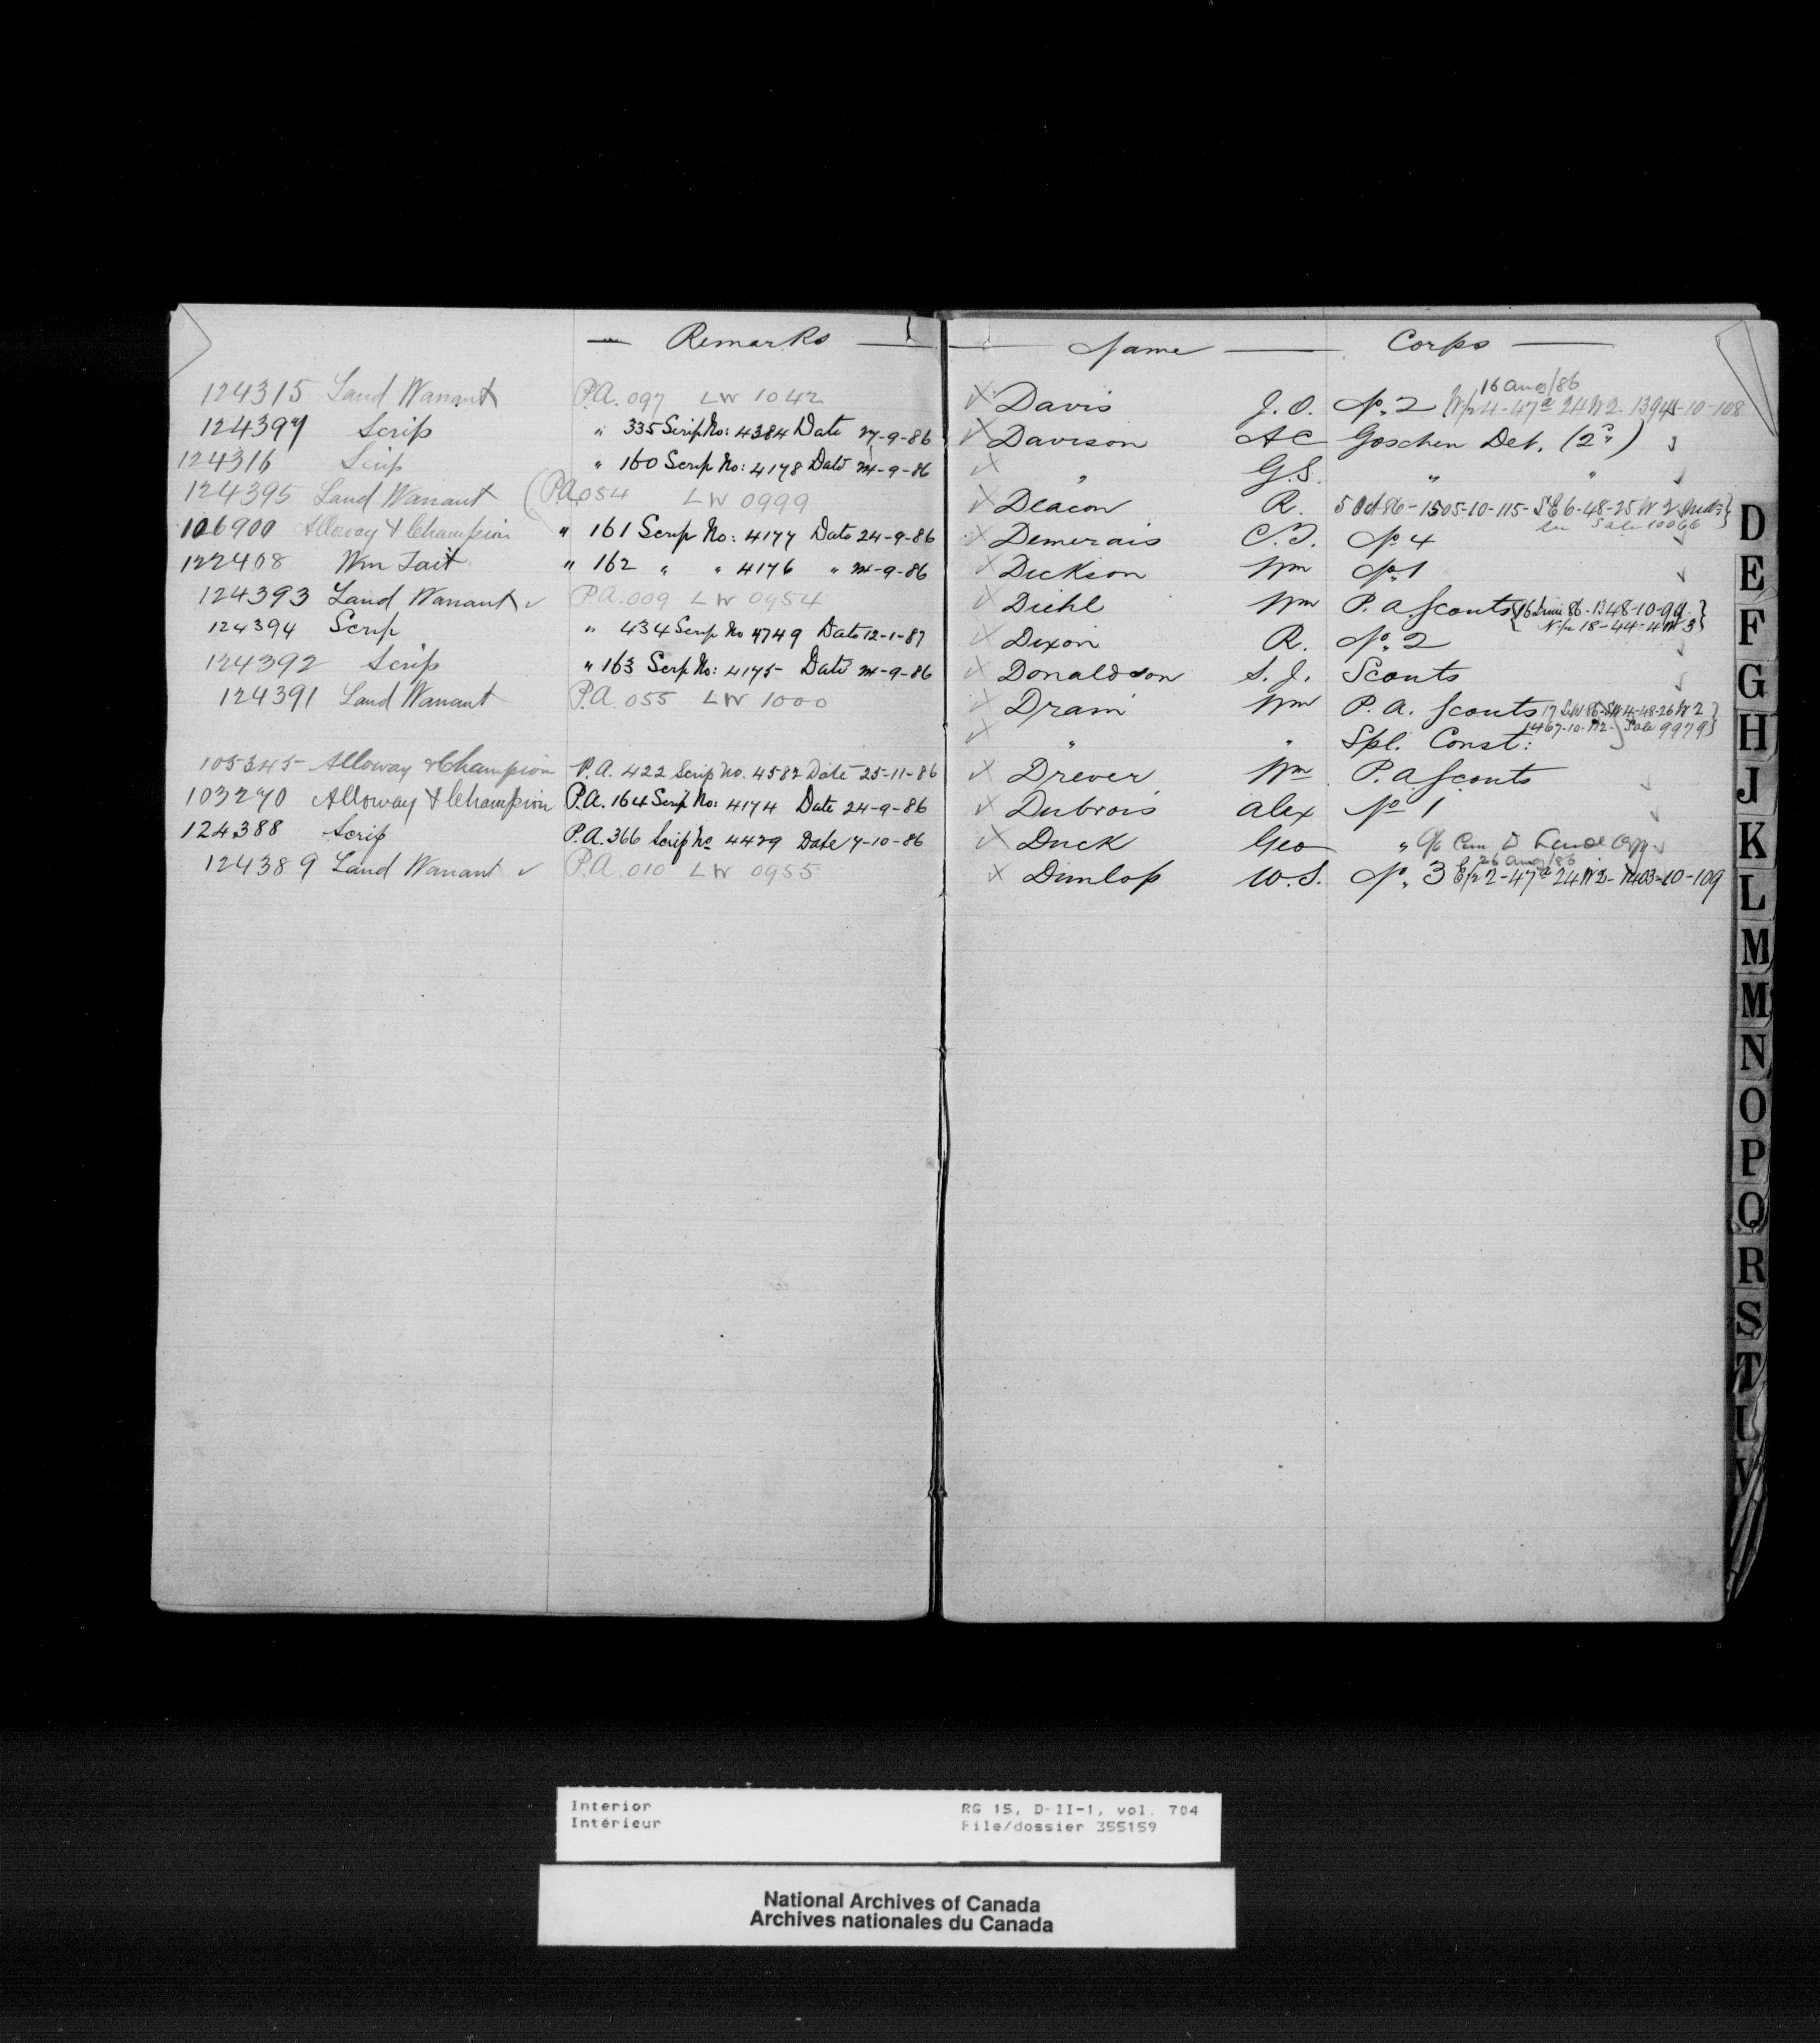 — Remarks —
124315 Land Warrant P.A. 097 LW 1042
124397 Scrip " 335 Scrip No: 4384 Date 27-9-86
124316 Scrip " 160 Scrip No: 4178 Date 24-9-86
124395 Land Warrant (P.A. 054 LW 0999
106900 Alloway & Champion " 161 Scrip No: 4177 Date 24-9-86
122408 Wm Tait " 162 " " 4176 " 24-9-86
124393 Land Warrant ✓ P.A. 009 LW 0954
124394 Scrip " 434 Scrip No 4749 Date 12-1-87
124392 Scrip " 163 Scrip No: 4175 Date 24-9-86
124391 Land Warrant P.A. 055 LW 1000
105345 Alloway & Champion P.A. 422 Scrip No. 4582 Date 25-11-86
103270 Alloway & Champion P.A. 164 Scrip No: 4174 Date 24-9-86
124388 Scrip P.A. 366 Scrip No 4429 Date 7-10-86
124389 Land Warrant ✓ P.A. 010 LW 0955
— Name — Corps —
16 Aug/86
Davis J. O. No. 2 W½ 4-47a 24 W2-1394-10-108
Davison A C Goschen Det. (2") ✓
" G. S. " " ✓
Deacon R. 5 Oct 86-1505-10-115-SE 6-48-25 W 2
Sale 10066
Demerais C. T. No. 4 ✓
Dickson Wm No. 1 ✓
Diehl Wm P. A Scouts {16 June 86-1348-10-99}
N½ 18-44-4 W 3}
Dixon R. No. 2 ✓
Donaldson S. J. Scouts ✓
Drain Wm P. A. Scouts 17 86-SW 4-48-26 W 2}
1467-10-112-} Sale 9979}
" " Spl. Const:
Drever Wm P. A Scouts ✓
Dubrois Alex No 1 ✓
Duck Geo " Land ✓
26 Aug/86
Dunlop W. S. No. 3 E½ 2-47a 24 W2-1403-10-109
D
E
F
G
H
J
K
L
M
M
N
O
P
Q
R
S
T
Interior RG 15, D-II-1, vol. 704
Intérieur File/dossier 355159
National Archives of Canada
Archives nationales du Canada